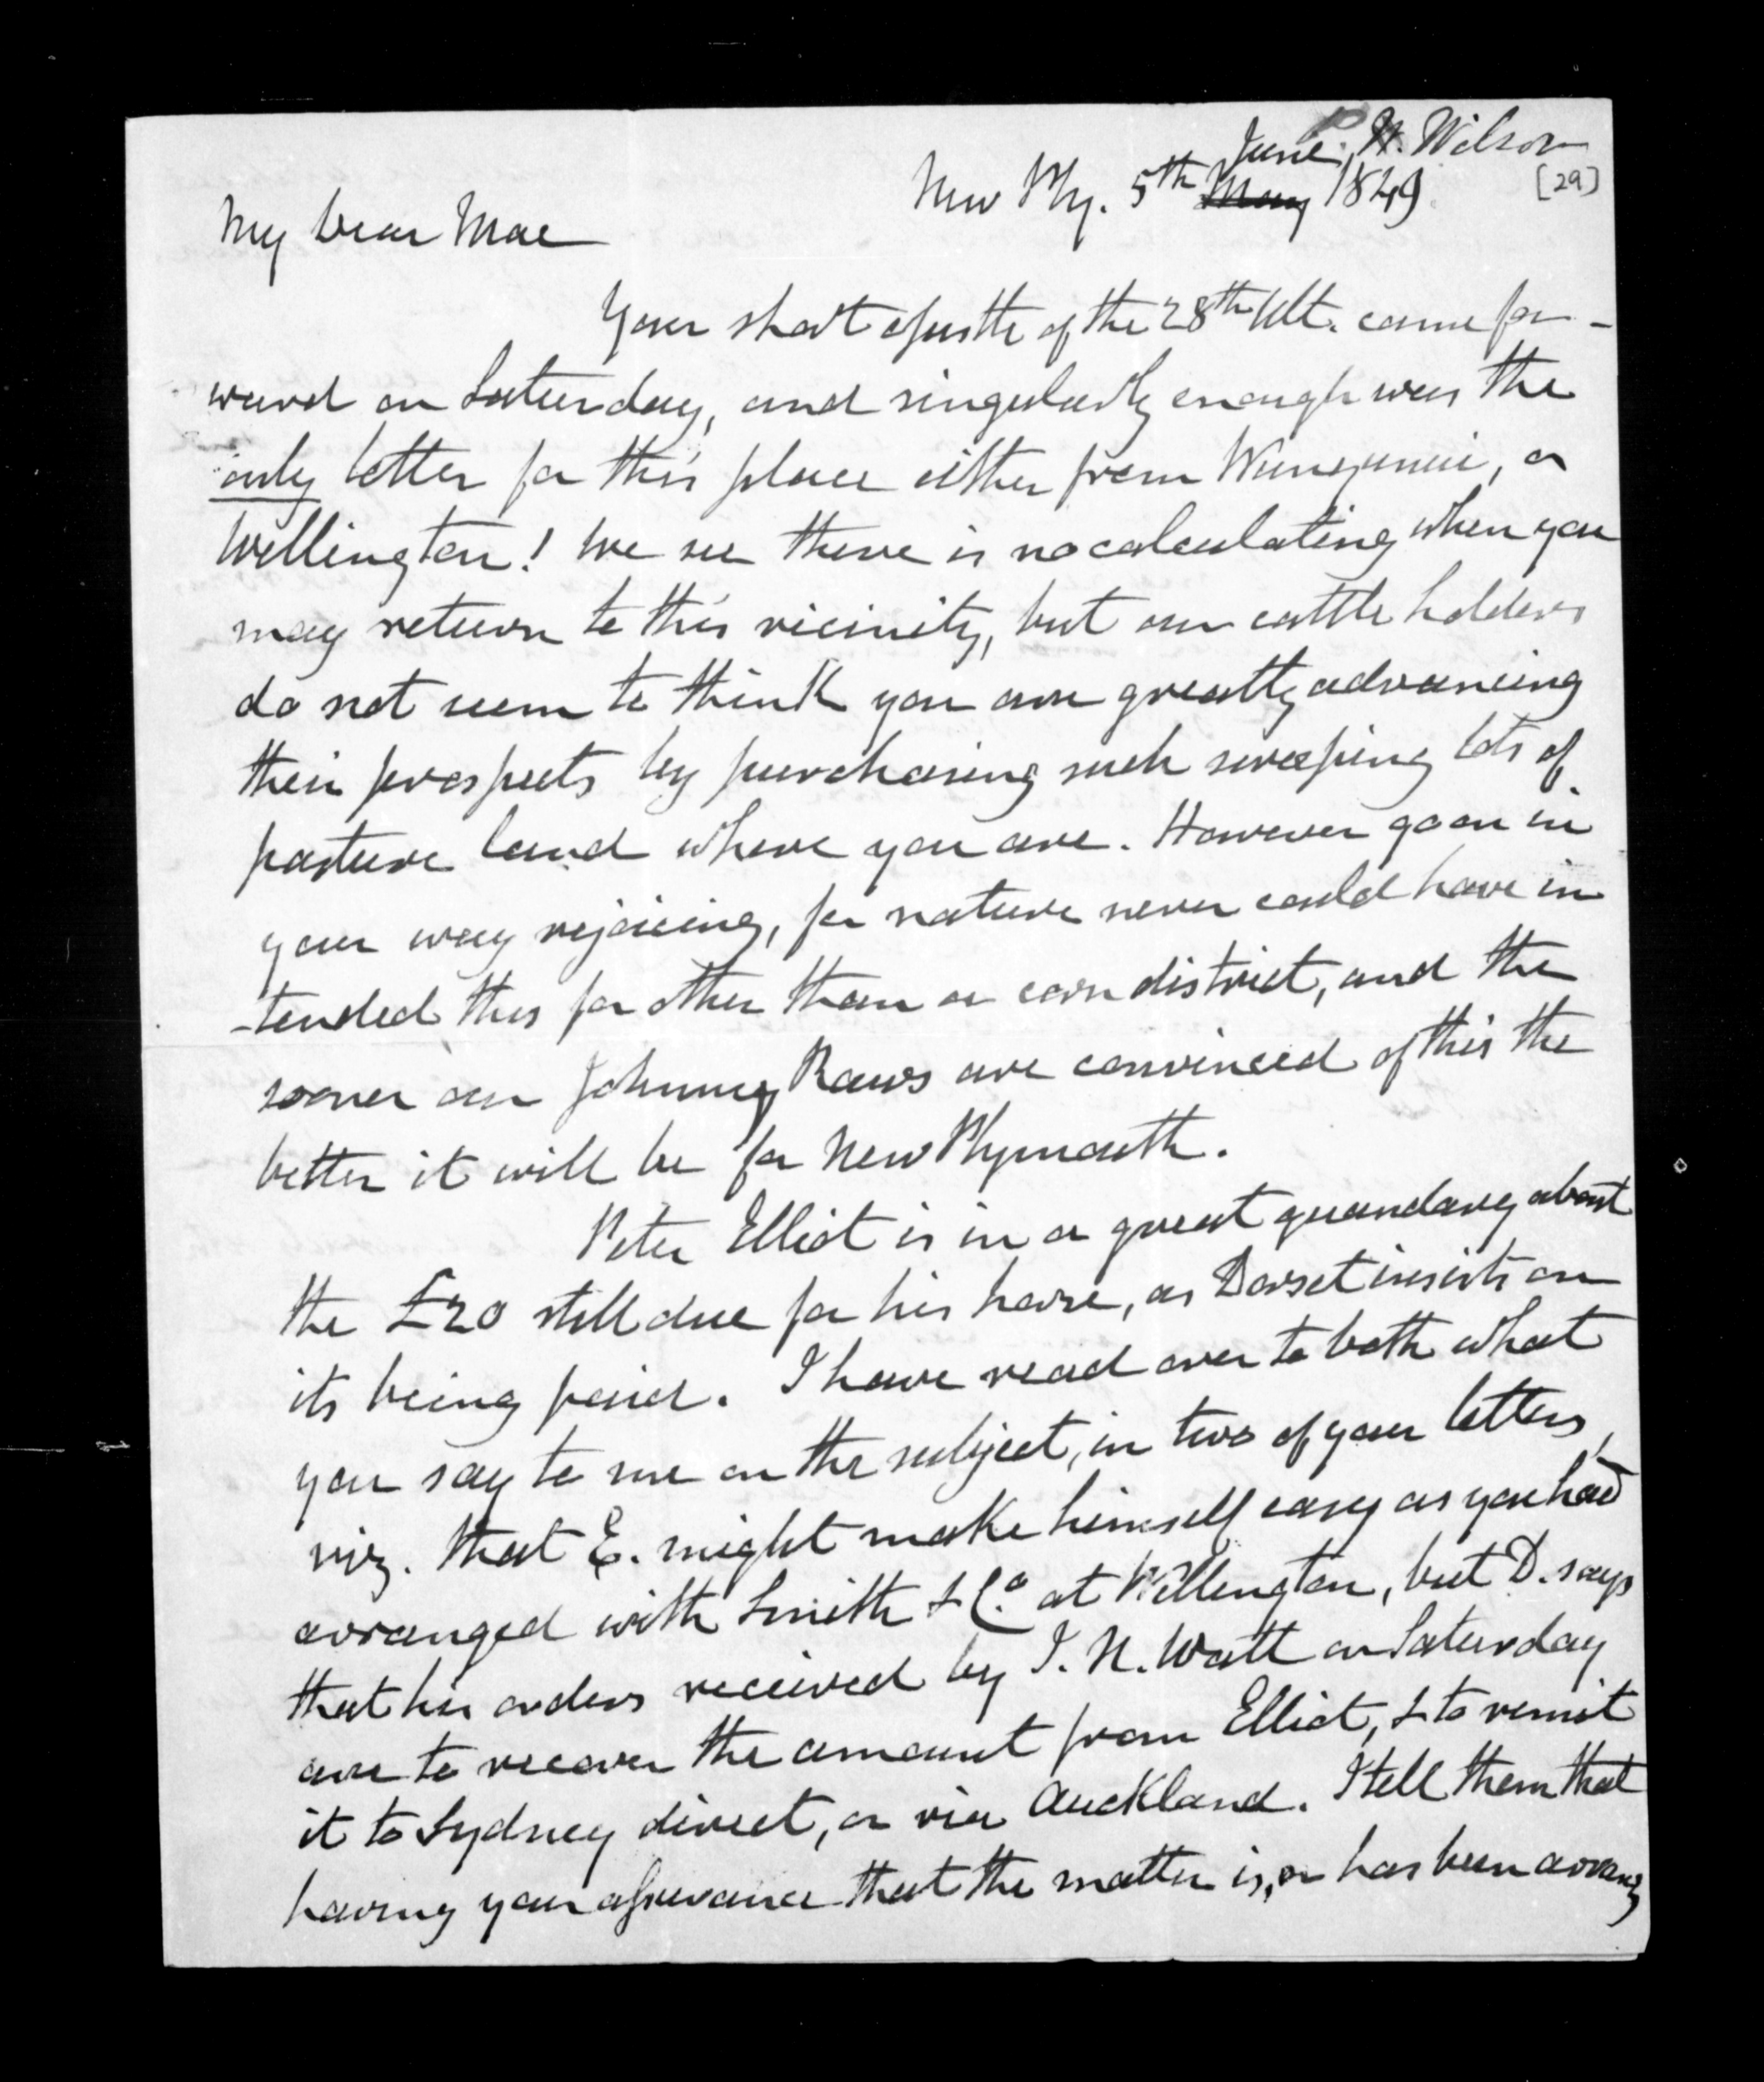 P. Wilson
[29]
New Ply. 5th ~~May~~ June, 1849.
My Dear Mac
Your short epistle of the 28th Ult. came for-
ward on Saturday, and singularly enough was the
only letter for this place either from Wanganui, or
Wellington! We see there is no calculating when you
may return to this vicinity, but our cattle holders
do not seem to think you are greatly advancing
their prospects by purchasing such sweeping lots of
pasture land where you are. However go on in
your way rejoicing, for nature never could have in
-tended this for other than a corn district, and the
sooner our Johnny Raws are convinced of this the
better it will be for New Plymouth.
Peter Elliot is in a great quandary about
the £20 still due for his horse, as Dorset insists on
its being paid. I have read over to both what
you say to me on the subject, in two of your letters,
viz. that E. might make himself easy as you had
arranged with Smith & Co. at Wellington, but D. says
that his orders received by I. N. Watt on Saturday
are to recover the amount from Elliot, & to remit
it to Sydney direct, or via Auckland. I tell them that
having your assurance that the matter is, or has been arrang